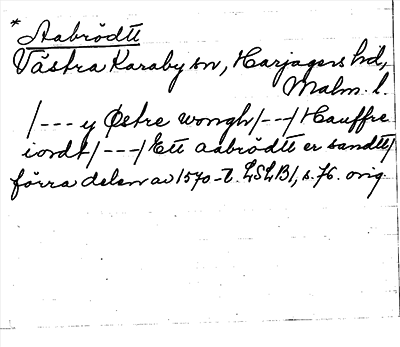 * Aabrödtt
Västra Karaby sn, Harjagers hd,
Malm. l.
/--- y Østre wongh/---/Hauffre
iordt/---/Ett aabrödtt er sandtt/
förra delen av 1570-t. LSLB1, s. 76. orig.